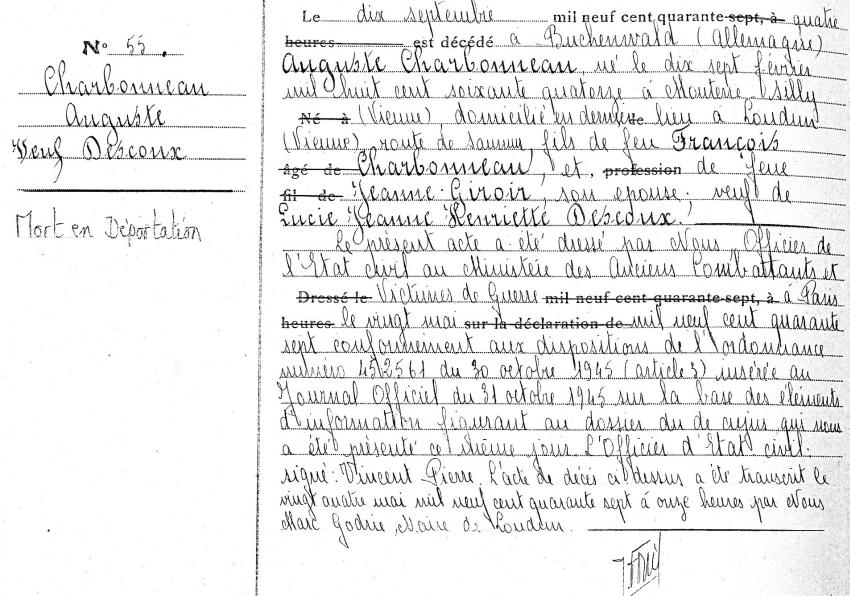 N° 55.
Charbonneau
Auguste
Veuf Descoux
Mort en Déportation
Le dix septembre mil neuf cent quarante sept, à quatre
heures est décédé à Buchenwald (Allemagne)
Auguste Charbonneau né le dix sept février
mil huit cent soixante quatorze à Mouterre Silly
Né à (Vienne), domicilié en dernier lieu à Loudun
(Vienne) route de Saumur, fils de feu François
âgé de Charbonneau, et, profession de feue
fil de Jeanne Giroir, son épouse; veuf de
Lucie Jeanne Henriette Descoux.
Le présent acte a été dressé par Nous, Officier de
l'Etat civil au Ministère des Anciens Combattants et
Dressé le Victimes de Guerre mil neuf cent quarante-sept, à à Paris
heures le vingt mai sur la déclaration de mil neuf cent quarante
sept conformément aux dispositions de l'ordonnance
numéro 45/2561 du 30 octobre 1945 (article 3) insérée au
Journal Officiel du 31 octobre 1945 sur la base des éléments
d'information figurant au dossier du de cujus qui nous
a été présenté ce même jour. L'Officier d'Etat civil.
signé: Vincent Pierre. L'acte de décès ci dessus a été transcrit le
vingt quatre mai mil neuf cent quarante sept à onze heures par Nous
Marc Godrie, Maire de Loudun.